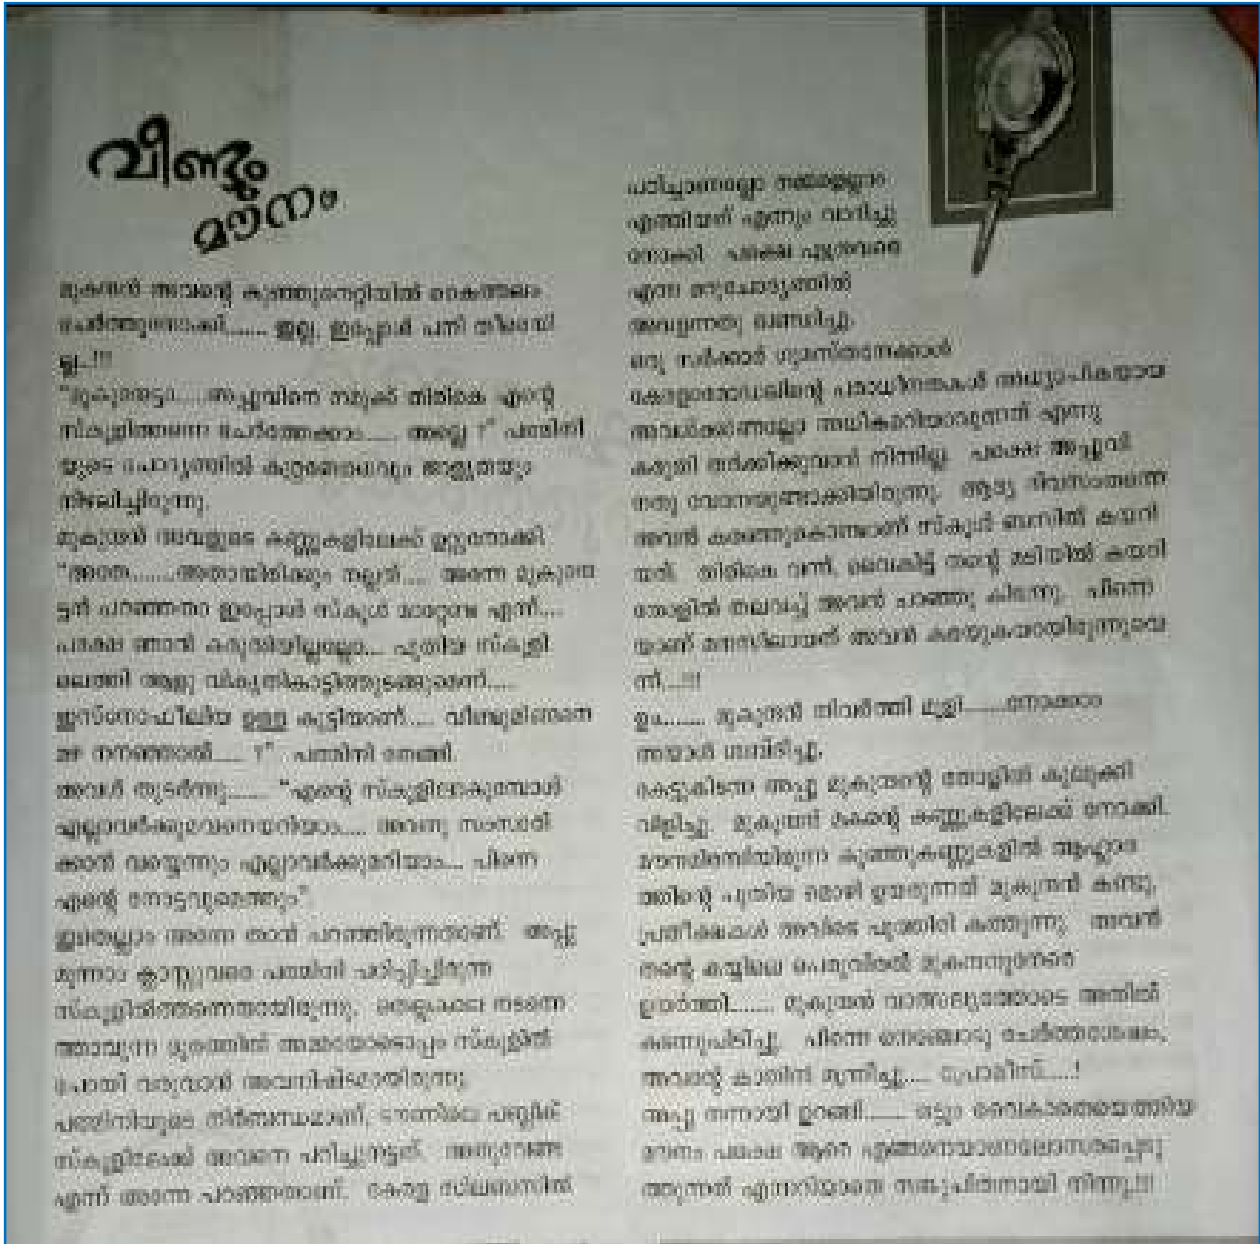 വീണ്ടും
മൗനം
മുകുന്ദൻ അവന്റെ കുഞ്ഞുനെറ്റിയിൽ കൈത്തലം
ചേർത്തുനോക്കി....... ഇല്ല, ഇപ്പോൾ പനി തീരെയി
ല്ല..!!!
"മുകുന്ദേട്ടാ.....അപ്പുവിനെ നമുക്ക് തിരികെ എന്റെ
സ്കൂളിത്തന്നെ ചേർത്തേക്കാം..... അല്ലേ ?" പത്മിനി
യുടെ ചോദ്യത്തിൽ കുറ്റബോധവും ജാള്യതയും
നിഴലിച്ചിരുന്നു.
മുകുന്ദൻ അവളുടെ കണ്ണുകളിലേക്ക് ഉറ്റുനോക്കി
"അതെ.......അതായിരിക്കും നല്ലത്.... അന്നേ മുകുന്ദേ
ട്ടൻ പറഞ്ഞതാ ഇപ്പോൾ സ്കൂൾ മാറ്റേണ്ട എന്ന്....
പക്ഷെ ഞാൻ കരുതിയില്ലല്ലോ... പുതിയ സ്കൂളി
ലെത്തി ആളു വികൃതികാട്ടിത്തുടങ്ങുമെന്ന്.....
ഇസ്നോഫീലിയ ഉള്ള കുട്ടിയാണ്.... വീണ്ടുമിങ്ങനെ
മഴ നനഞ്ഞാൽ..... ?" പത്മിനി തേങ്ങി.
അവൾ തുടർന്നു....... "എന്റെ സ്കൂളിലാകുമ്പോൾ
എല്ലാവർക്കുമവനെയറിയാം.... അവനു സംസാരി
ക്കാൻ വയ്യെന്നും എല്ലാവർക്കുമറിയാം... പിന്നെ
എന്റെ നോട്ടവുമെത്തും".
ഇതെല്ലാം അന്നേ താൻ പറഞ്ഞിരുന്നതാണ്. അപ്പു
മൂന്നാം ക്ലാസ്സുവരെ പത്മിനി പഠിപ്പിച്ചിരുന്ന
സ്കൂളിൽത്തന്നെയായിരുന്നു. നടന്നെ
ത്താവുന്ന ദൂരത്തിൽ അമ്മയോടൊപ്പം സ്കൂളിൽ
പോയി വരുവാൻ അവനിഷ്ടമായിരുന്നു
പത്മിനിയുടെ നിർബന്ധമാണ്, പബ്ലിക്
സ്കൂളിലേക്ക് അവനെ പറിച്ചുനട്ടത്. അതുവേണ്ട
എന്ന് താനന്നേ പറഞ്ഞതാണ്. കേരള സിലബസിൽ
പഠിച്ചാണല്ലോ നമ്മളെല്ലാം
എത്തിയത് എന്നും വാദിച്ചു
നോക്കി പക്ഷെ
എന്ന മറുചോദ്യത്തിൽ
അവളന്നതു ഖണ്ഡിച്ചു.
ഒരു സർക്കാർ ഗുമസ്തനേക്കാൾ
കേരളാമോഡലിന്റെ പരാധീനതകൾ അധ്യാപികയായ
അവൾക്കാണല്ലോ അധികമറിയാവുന്നത് എന്നു
കരുതി തർക്കിക്കുവാൻ നിന്നില്ല. പക്ഷെ അപ്പുവി
നതു വേദനയുണ്ടാക്കിയിരുന്നു. ആദ്യ ദിവസംതന്നെ
അവൻ കരഞ്ഞുകൊണ്ടാണ് സ്കൂൾ ബസിൽ കയറി
യത്. തിരികെ വന്ന്, വൈകിട്ട് തന്റെ മടിയിൽ കയറി
തോളിൽ തലവച്ച് അവൻ ചാഞ്ഞു കിടന്നു. പിന്നെ
യാണ് മനസ്സിലായത് അവൻ കരയുകയായിരുന്നുവെ
ന്ന്...!!!
ഉം....... മുകുന്ദൻ നിവർത്തി മൂളി.......നോക്കാം
അയാൾ
കേട്ടുകിടന്ന അപ്പു മുകുന്ദന്റെ തോളിൽ കുലുക്കി
വിളിച്ചു. മുകുന്ദൻ മകന്റെ കണ്ണുകളിലേക്ക് നോക്കി.
കുഞ്ഞുകണ്ണുകളിൽ ആഹ്ലാദ
ത്തിന്റെ പുതിയ മൊഴി ഉയരുന്നത് മുകുന്ദൻ കണ്ടു.
പ്രതീക്ഷകൾ അവിടെ പൂത്തിരി കത്തുന്നു. അവൻ
തന്റെ കയ്യിലെ പെരുവിരൽ മുകുന്ദനുനേരെ
ഉയർത്തി....... മുകുന്ദൻ വാത്സല്യത്തോടെ അതിൽ
പിന്നെ നെഞ്ചോടു ചേർത്തശേഷം,
അവന്റെ കാതിൽ മന്ത്രിച്ചു.... പ്രോമിസ്.....!
അപ്പു നന്നായി ഉറങ്ങി....... ഒട്ടും വൈകാതെയെത്തിയ
മൗനം പക്ഷെ ആരെ
ത്തുന്നത് എന്നറിയാതെ നിന്നു!!!!